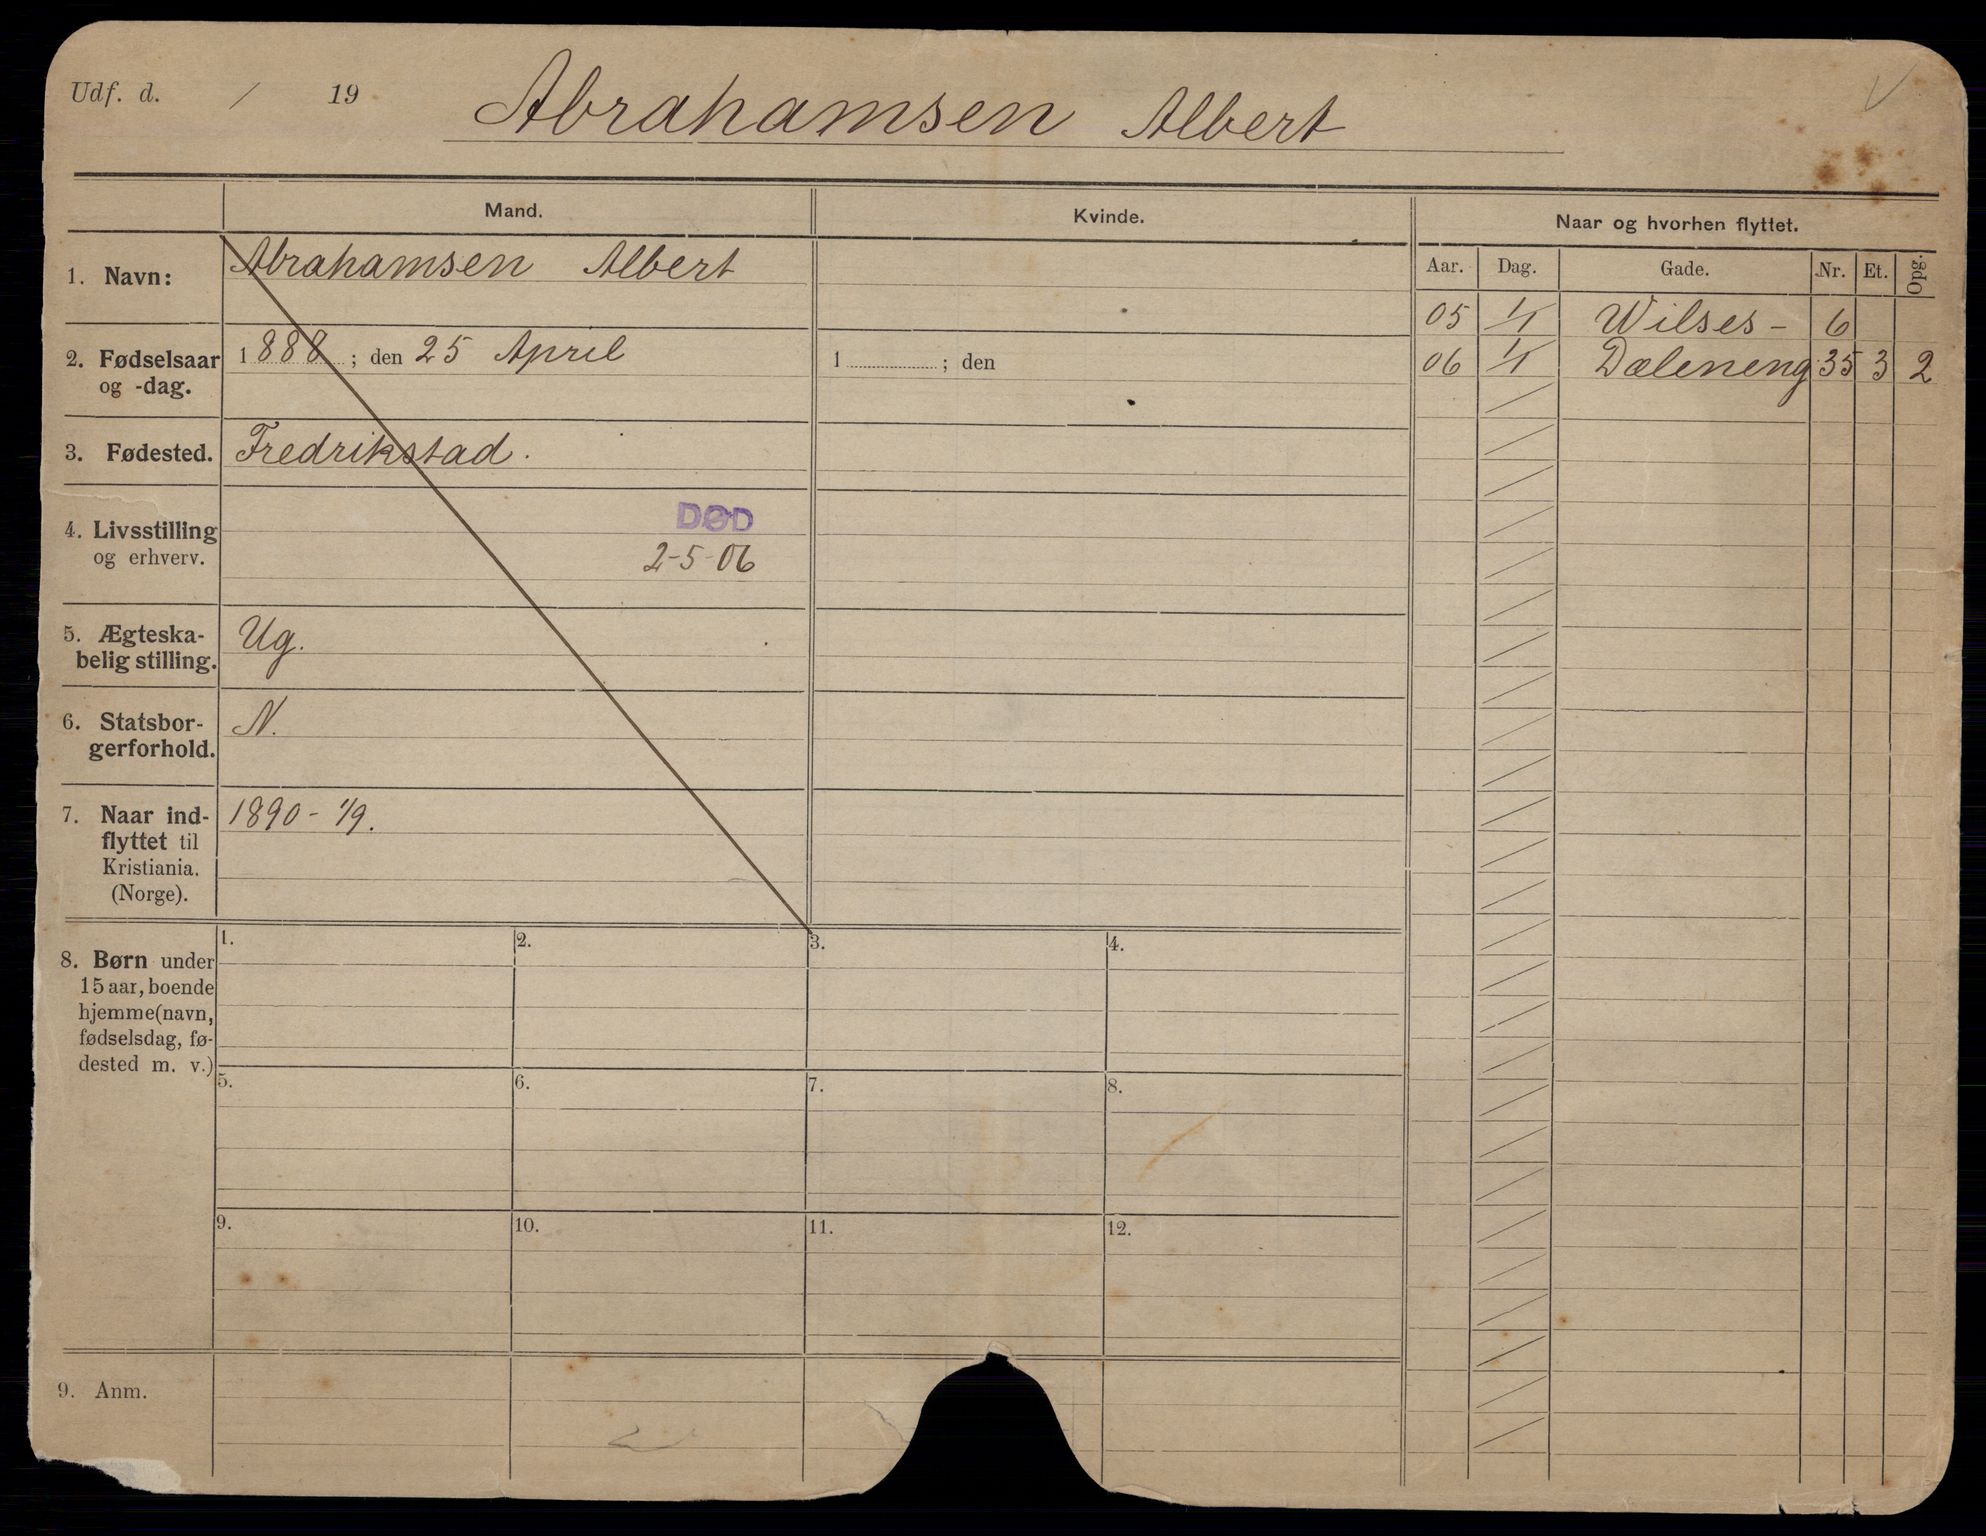 Udf. d. / 19
Abrahamsen Albert
Mand.
Kvinde.
Naar og hvorhen flyttet.
Aar. Dag. Gade. Nr. Et. Opg.
1. Navn: Abrahamsen Albert
05 1/1 Wilses - 6
2. Fødselsaar og -dag. 1888; den 25 April
1 ; den
06 1/1 Dæleneng 35 3 2
3. Fødested. Fredrikstad.
4. Livsstilling
og erhverv.
DØD
2-5-06
5. Ægteska-
belig stilling.
Ug.
6. Statsbor-
gerforhold.
N.
7. Naar ind-
flyttet til
Kristiania.
(Norge).
1890 - 1/9.
8. Børn under
15 aar, boende
hjemme (navn,
fødselsdag, fø-
dested m. v.)
1. 2. 3. 4.
5. 6. 7. 8.
9. 10. 11. 12.
9. Anm.